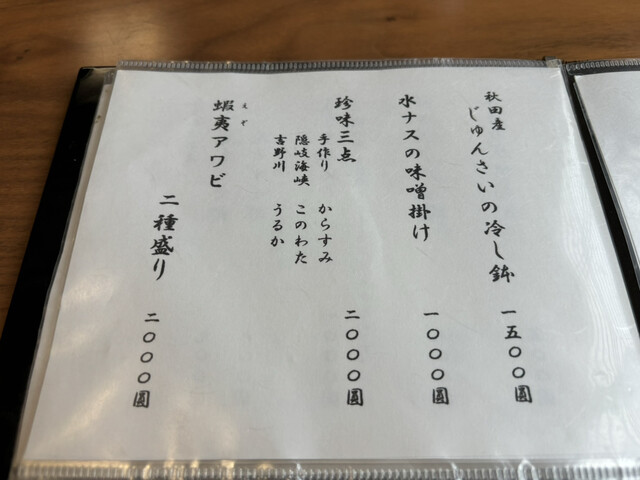 秋田産
じゅんさいの冷し鉢
一五〇〇圓
水ナスの味噌掛け
一〇〇〇圓
珍味三点
二〇〇〇圓
手作り からすみ
隠岐海峡 このわた
吉野川 うるか
蝦夷アワビ
えぞ
二種盛り
二〇〇〇圓